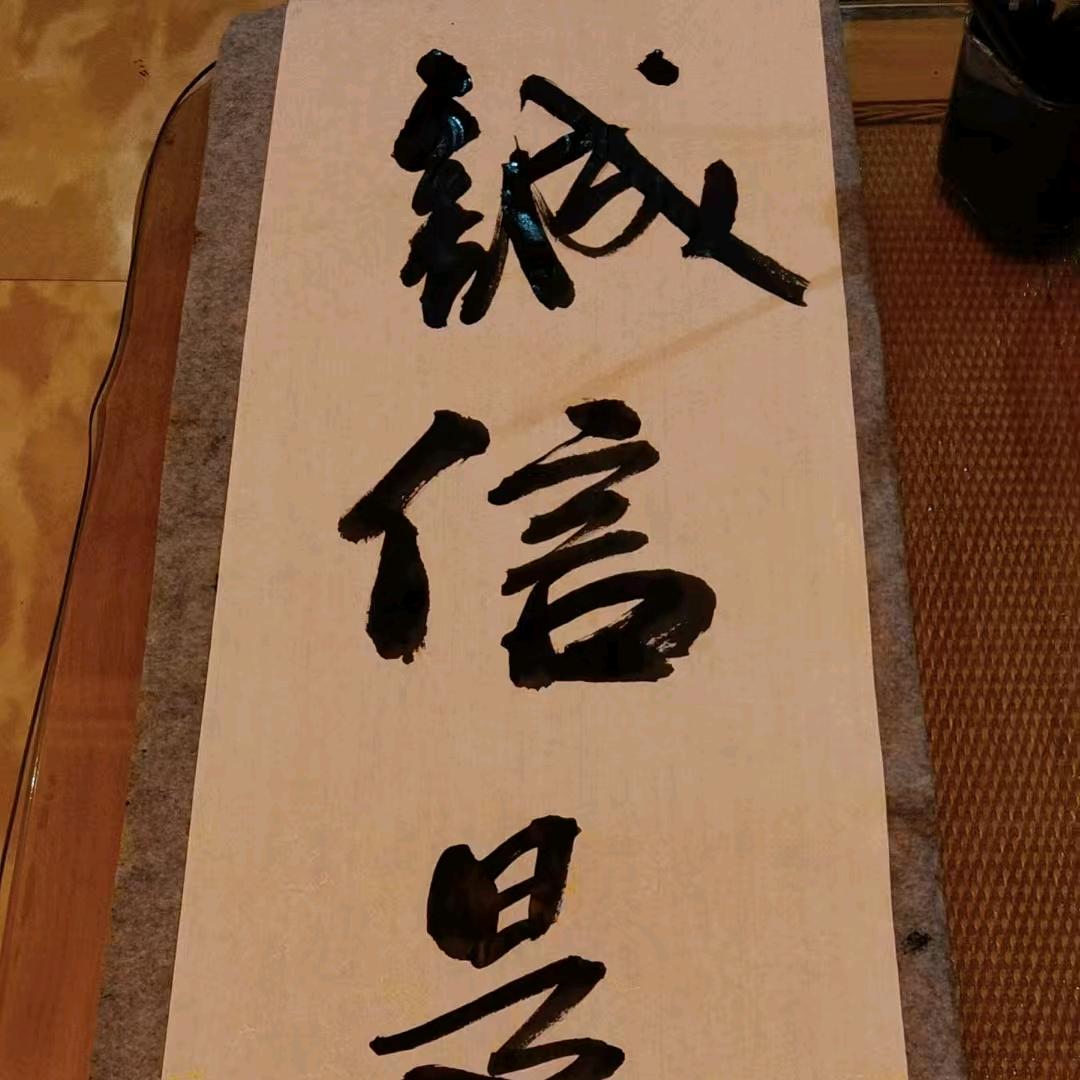 誠信是